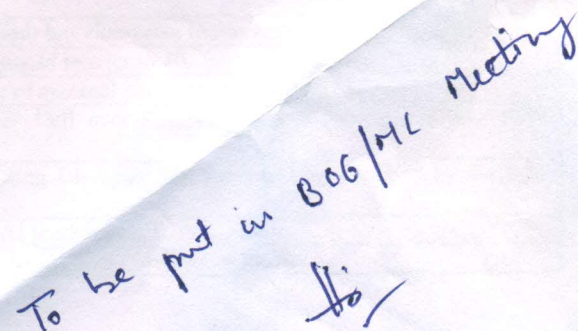 To be put in BOG/MC Meeting